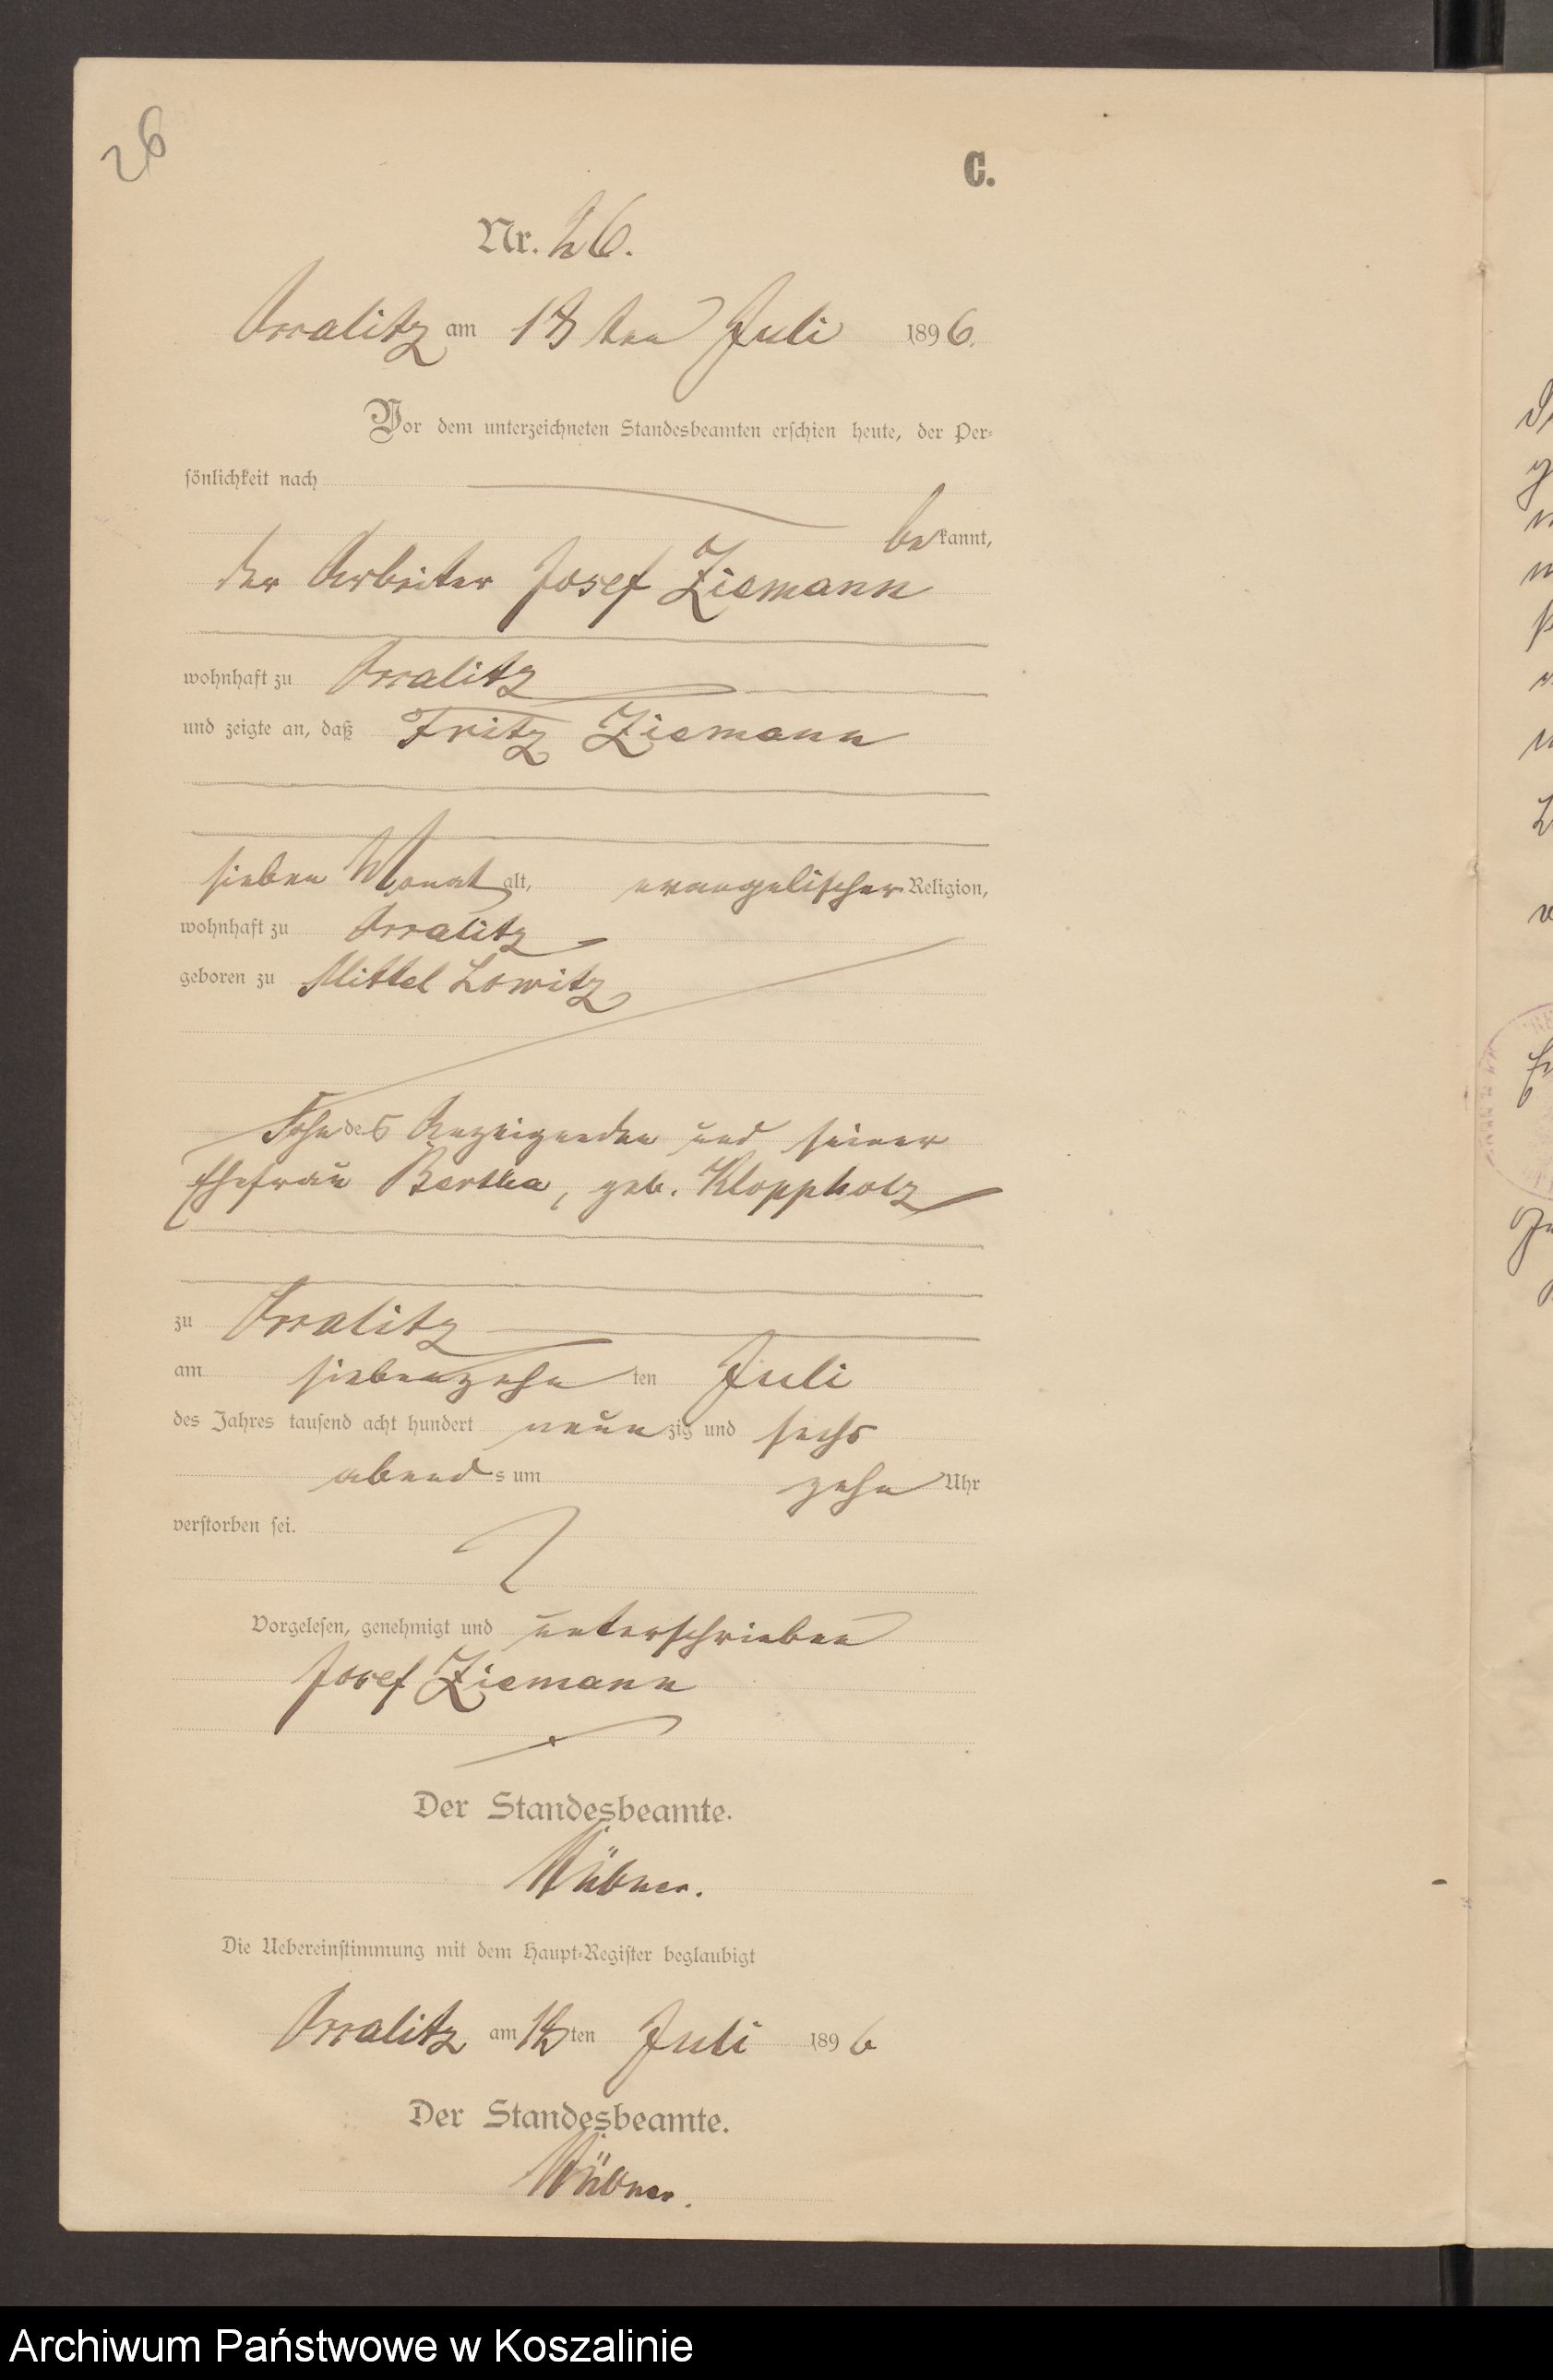 26
C.
Nr. 26.
Arralitz am 18 ten Juli 1896.
Vor dem unterzeichneten Standesbeamten erschien heute, der Per-
sönlichkeit nach
bekannt,
der Arbeiter Josef Ziemann
wohnhaft zu Arralitz
und zeigte an, daß Fritz Ziemann
sieben Monat alt, evangelischer Religion,
wohnhaft zu Arralitz
geboren zu Mittel Lowitz
Sohn des Anzeigenden und seiner
Ehefrau Bertha, geb. Kloppholz
zu Arralitz
am siebenzehn ten Juli
des Jahres tausend acht hundert neunzig und sechs
abends um zehn Uhr
verstorben sei.
Vorgelesen, genehmigt und unterschrieben
Josef Ziemann
Der Standesbeamte.
Wübner.
Die Uebereinstimmung mit dem Haupt-Register beglaubigt
Arralitz am 18ten Juli 1896
Der Standesbeamte.
Wübner.
Archiwum Państwowe w Koszalinie